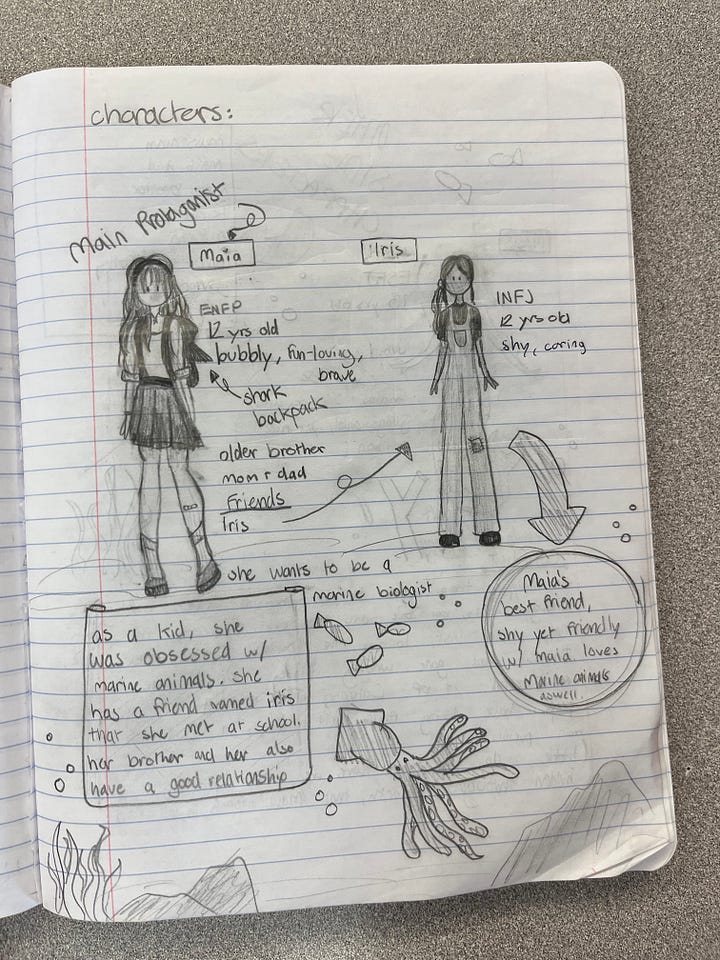 characters:
Main Protagonist
Maia
iris
ENFP
12 yrs old
bubbly, fun-loving,
brave
shark
backpack
older brother
mom + dad
Friends
Iris
INFJ
12 yrs old
shy, caring
she wants to be a
marine biologist
as a kid, she
was obsessed w/
marine animals. she
has a friend named iris
that she met at school.
her brother and her also
have a good relationship
Maia's
best friend,
shy yet friendly
w/ maia loves
marine animals
aswell.